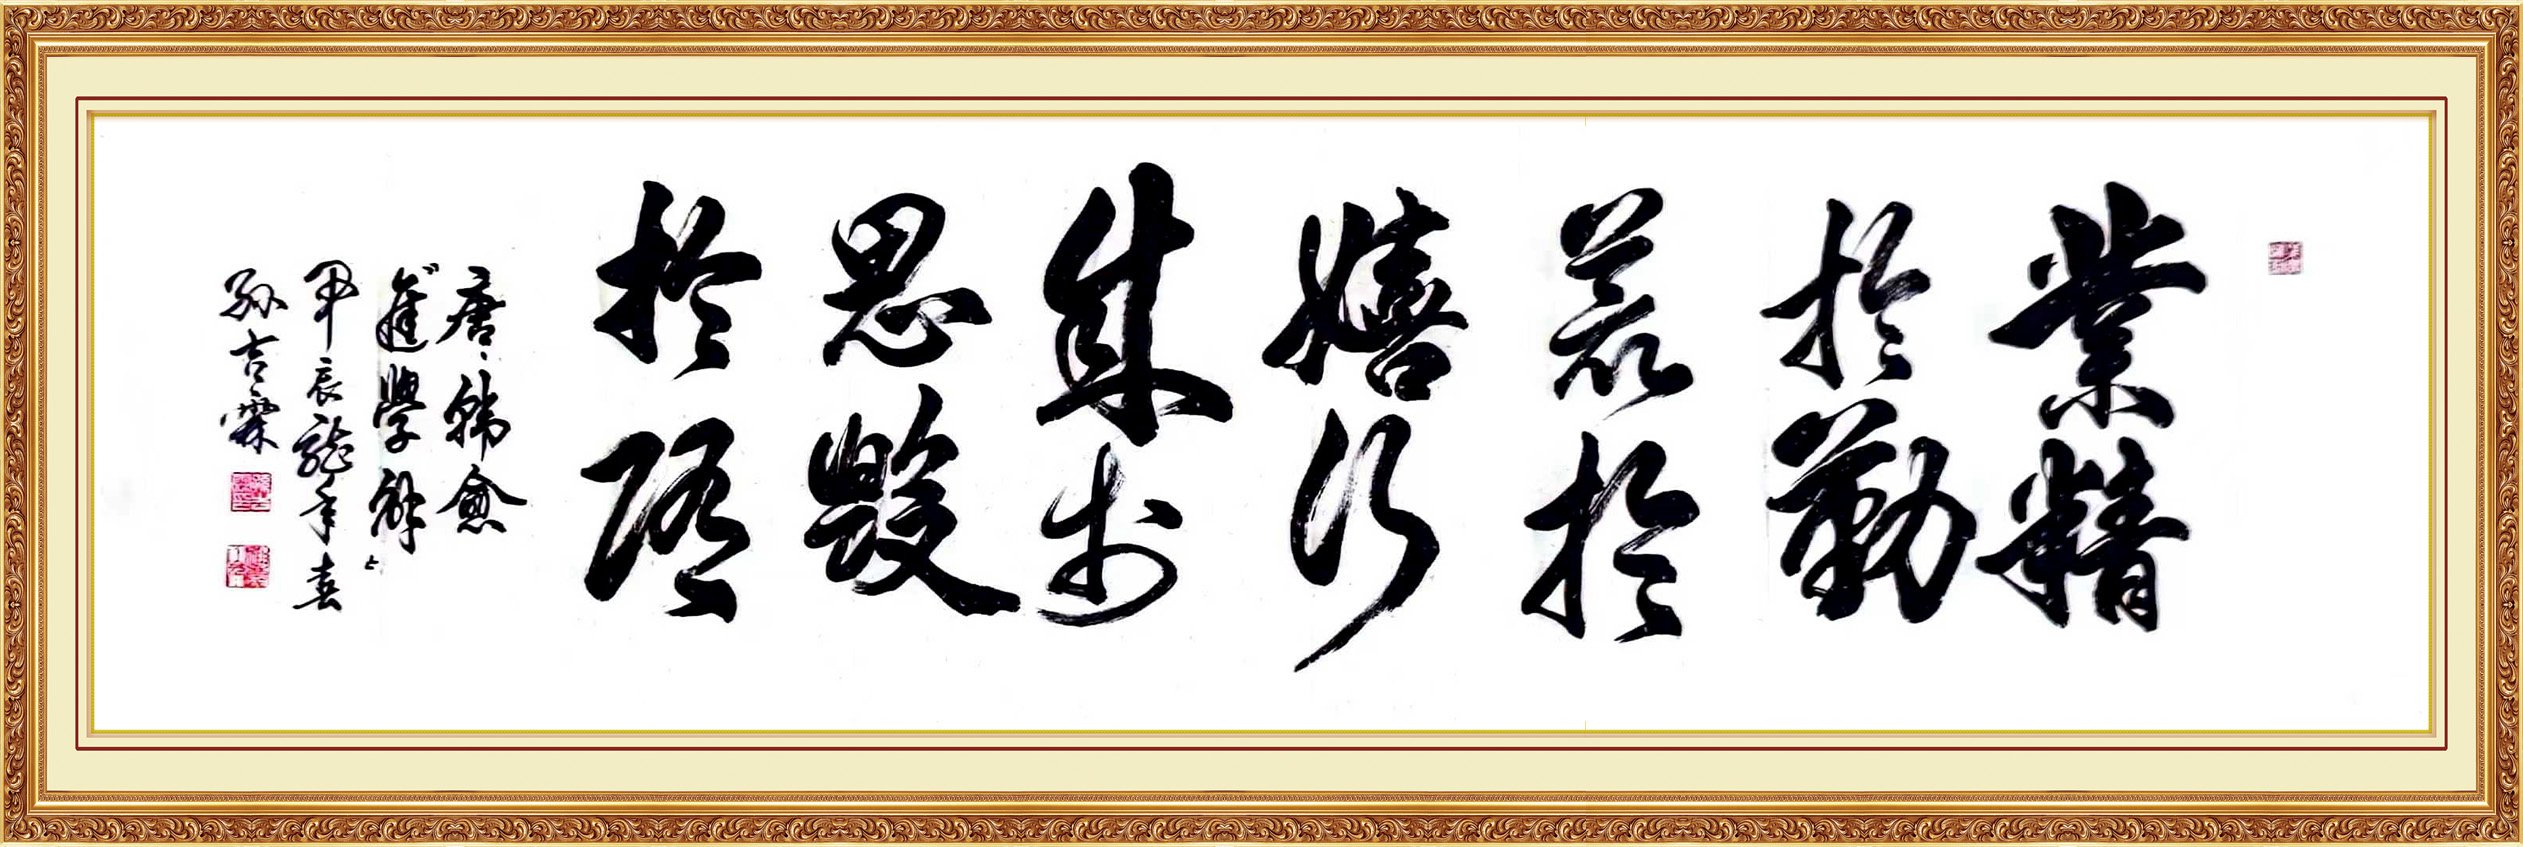 業精
於勤
荒於
嬉行
成於
思毀
於隨
唐·韓愈
進學解
甲辰龍年春
孫吉霖